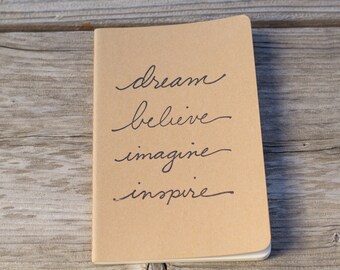 dream
believe
imagine
inspire